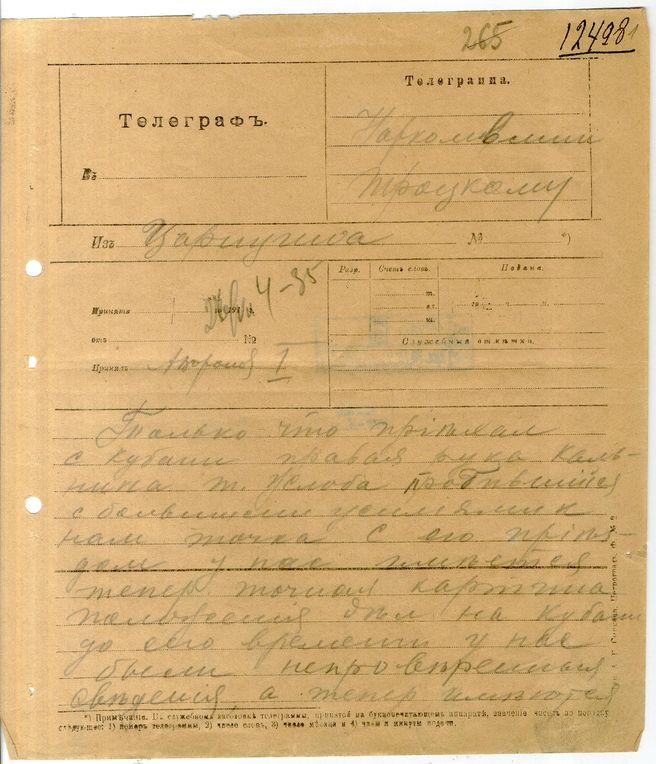 265
12498
Телеграмма.
Телеграфъ.
Наркомвоен
Троцкому
Въ
Изъ Царицына № *)
Разр. Счетъ словъ. Подана.
4-35
Принята 191
отъ №
Служебныя отмѣтки.
Принялъ
Только что пріѣхал
с Кубани правая рука Каль-
нина т. Жлоба пробившійся
с большими усиліями к
нам точка С его пріѣз-
дом у нас имѣется
тепер точная картина
положения дѣл на Кубани
до сего времени у нас
были непровѣренныя
сведения, а тепер имеются
*) Примѣчаніе. Въ служебномъ заголовкѣ телеграммы, принятой на буквопечатающемъ аппаратѣ, значеніе чиселъ по порядку
слѣдующее: 1) номеръ телеграммы, 2) число словъ, 3) число мѣсяца и 4) часы и минуты подачи.